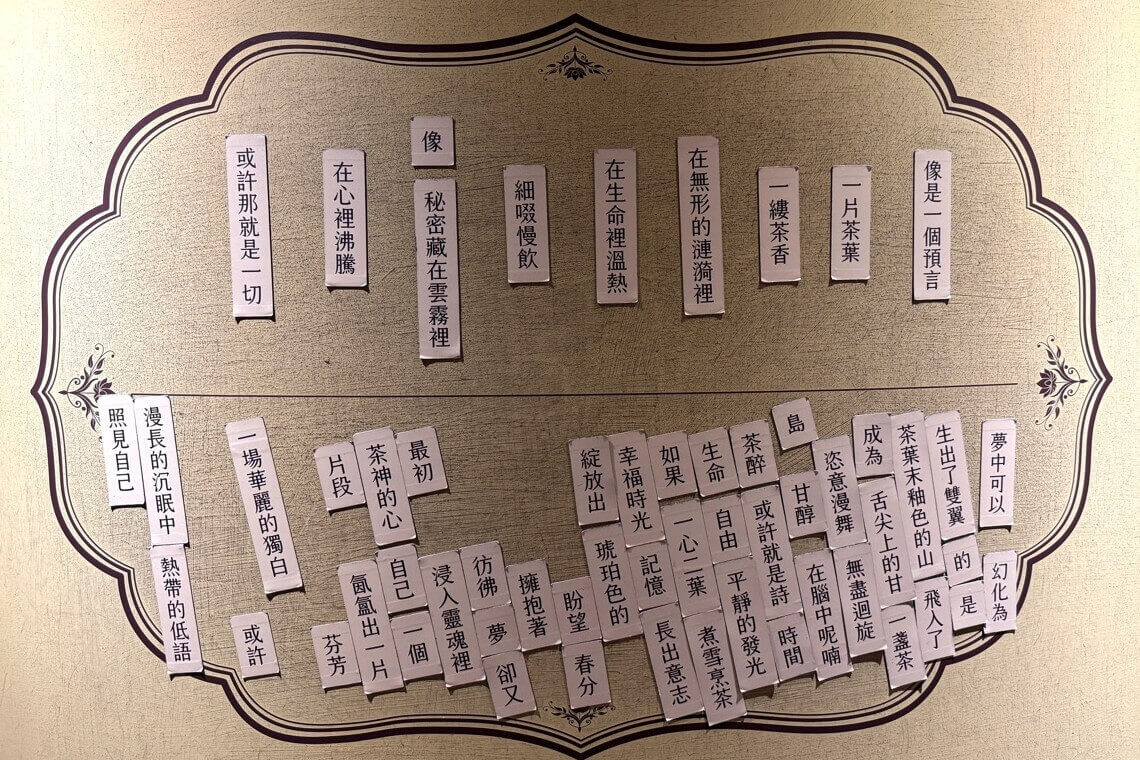 像是一個預言
一片茶葉
一縷茶香
在無形的漣漪裡
在生命裡溫熱
細啜慢飲
像
秘密藏在雲霧裡
在心裡沸騰
或許那就是一切
夢中可以
幻化為
生出了雙翼
的
是
茶葉末釉色的山
飛入了
成為
舌尖上的甘
一盞茶
恣意漫舞
無盡迴旋
島
甘醇
在腦中呢喃
茶醉
或許就是詩
時間
生命
自由
平靜的發光
如果
一心二葉
煮雪烹茶
幸福時光
記憶
長出意志
綻放出
琥珀色的
盼望
春分
擁抱著
彷彿
夢
卻又
最初
浸入靈魂裡
茶神的心
自己
一個
片段
氤氳出一片
芬芳
一場華麗的獨白
或許
漫長的沉眠中
熱帶的低語
照見自己